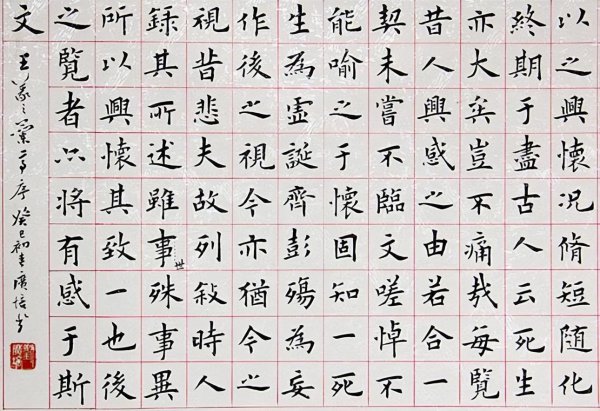 以之興懷況脩短隨化
終期于盡古人云死生
亦大矣豈不痛哉每覽
昔人興感之由若合一
契未嘗不臨文嗟悼不
能喻之于懷固知一死
生為虛誕齊彭殤為妄
作後之視今亦猶今之
視昔悲夫故列敍時人
録其所述雖事世殊事異
所以興懷其致一也後
之覽者亦將有感于斯
文
王羲之蘭亭序癸巳初